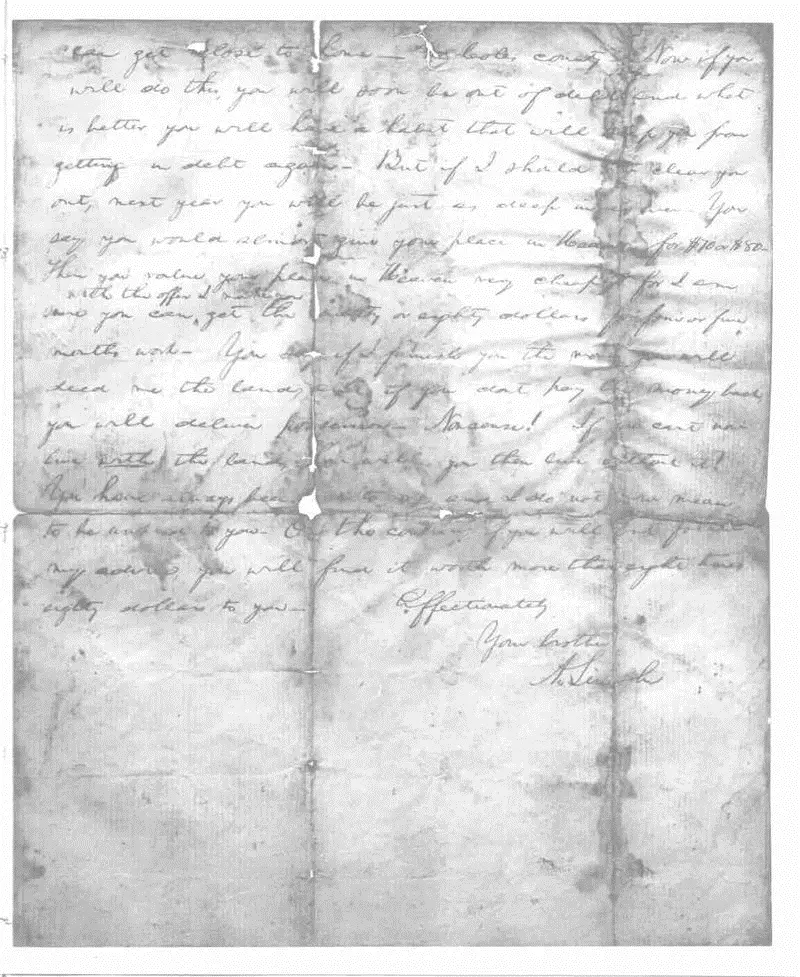 can get close to home — in Coles county. Now if you
will do this, you will soon be out of debt and what
is better you will have a habit that will keep you from
getting in debt again — But if I should clear you
out, next year you will be just as deep in as ever. You
say you would almost give your place in Heaven for $70 or $80—
Then you value your place in Heaven very cheaply for I am
with the offer I make you
sure you can get the seventy or eighty dollars for four or five
months work — You say if I furnish you the money you will
deed me the land, and if you dont pay the money back,
you will deliver possession — Nonsense! If you cant now
live with the land, how will you then live without it?
You have always been to me, and I do not now mean
to be unkind to you — On the contrary if you will but follow
my advice, you will find it worth more than eight times
eighty dollars to you —
Affectionately
Your brother
A. Lincoln